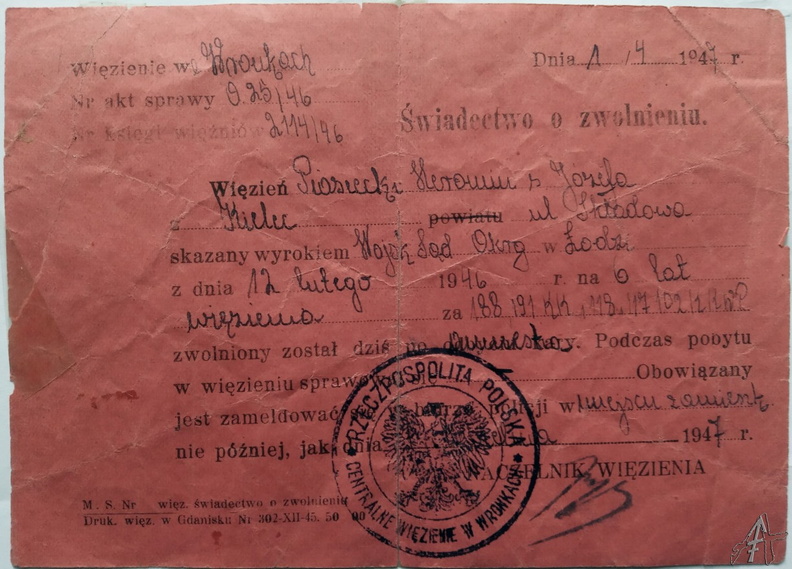 Więzienie we Wronkach
Dnia 1 /4 1947 r.
Nr akt sprawy 0.25/46
Nr księgi więźniów 2114/46
Świadectwo o zwolnieniu.
Więzień Piasecki Heronim s. Józefa
z Kielc powiatu ul Składowa
skazany wyrokiem Wojsk Sąd Okrg w Łodzi
z dnia 12 lutego 1946 r. na 6 lat
więzienia za 188 191 KK, 118, 47 102 KKWP
zwolniony został dziś po kary. Podczas pobytu
w więzieniu Obowiązany
jest zameldować w miejscu zamieszk
nie później, jak dnia 1947 r.
NACZELNIK WIĘZIENIA
RZECZPOSPOLITA POLSKA
CENTRALNE WIĘZIENIE W WRONKACH
M. S. Nr więz. świadectwo o zwolnieniu
Druk. więz. w Gdańsku Nr 302-XII-45. 50